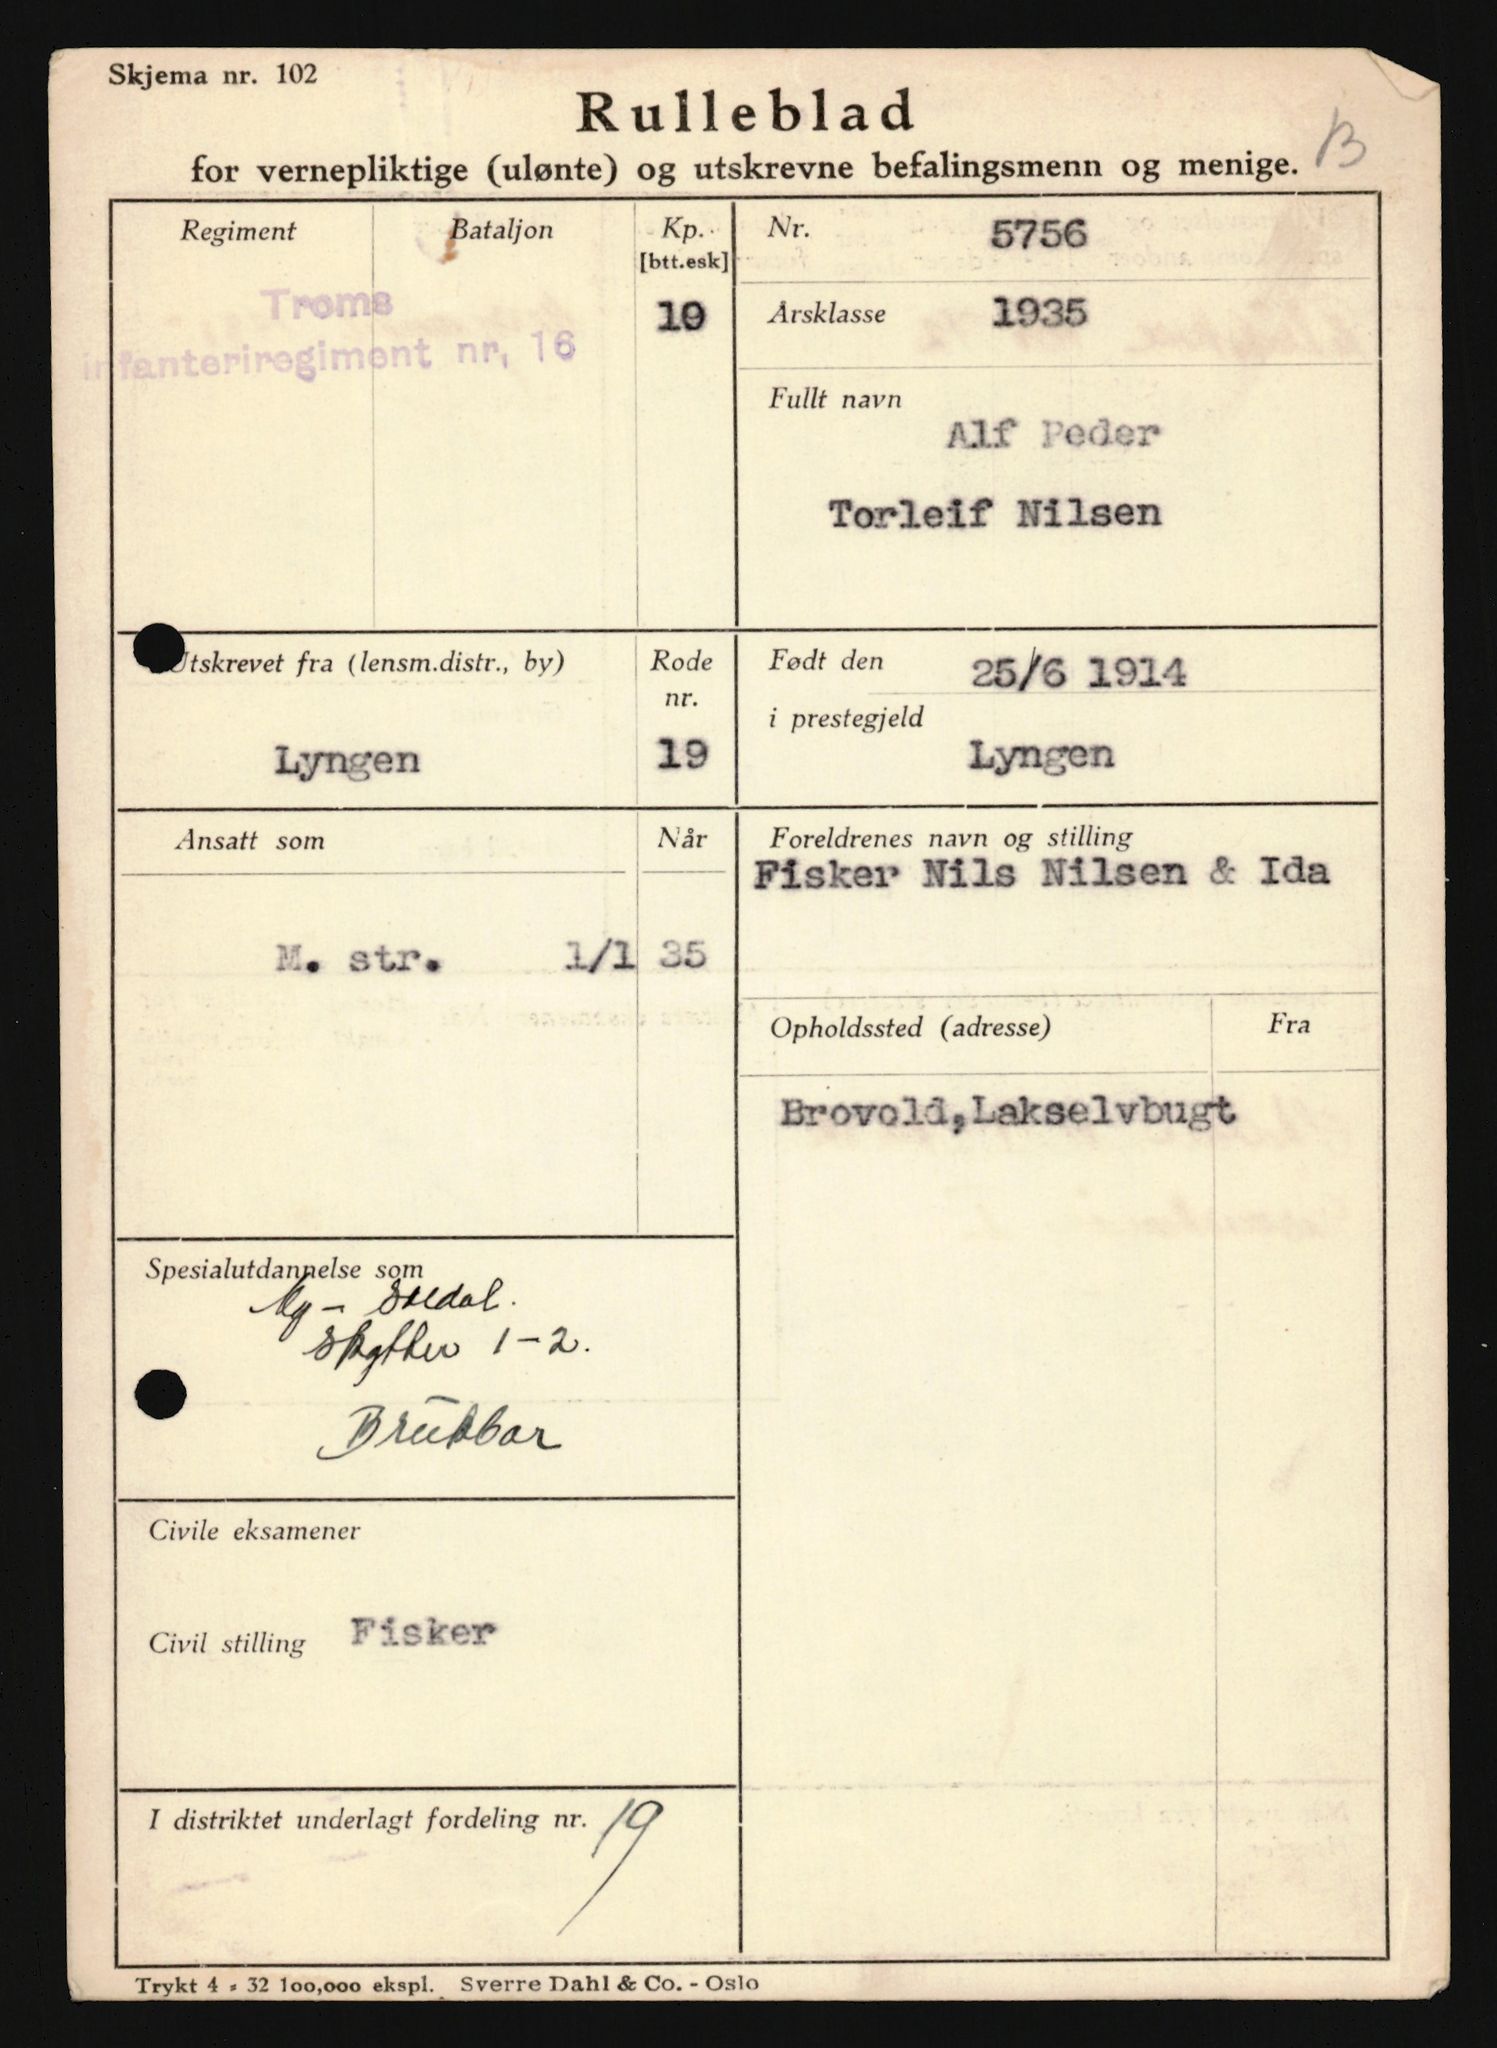 Skjema nr. 102
Rulleblad
for vernepliktige (ulønte) og utskrevne befalingsmenn og menige.
B
Regiment
Bataljon
Kp.
[btt.esk]
Troms
infanteriregiment nr. 16
10
Nr.
5756
Årsklasse
1935
Fullt navn
Alf Peder
Torleif Nilsen
Utskrevet fra (lensm.distr., by)
Rode
nr.
Lyngen
19
Født den
25/6 1914
i prestegjeld
Lyngen
Ansatt som
Når
M. str. 1/1 35
Foreldrenes navn og stilling
Fisker Nils Nilsen & Ida
Opholdssted (adresse)
Fra
Brovold, Lakselvbugt
Spesialutdannelse som
Mg - Soldat.
Skytter 1-2.
Brukbar
Civile eksamener
Civil stilling Fisker
I distriktet underlagt fordeling nr. 19
Trykt 4 - 32 100,000 ekspl. Sverre Dahl & Co. - Oslo